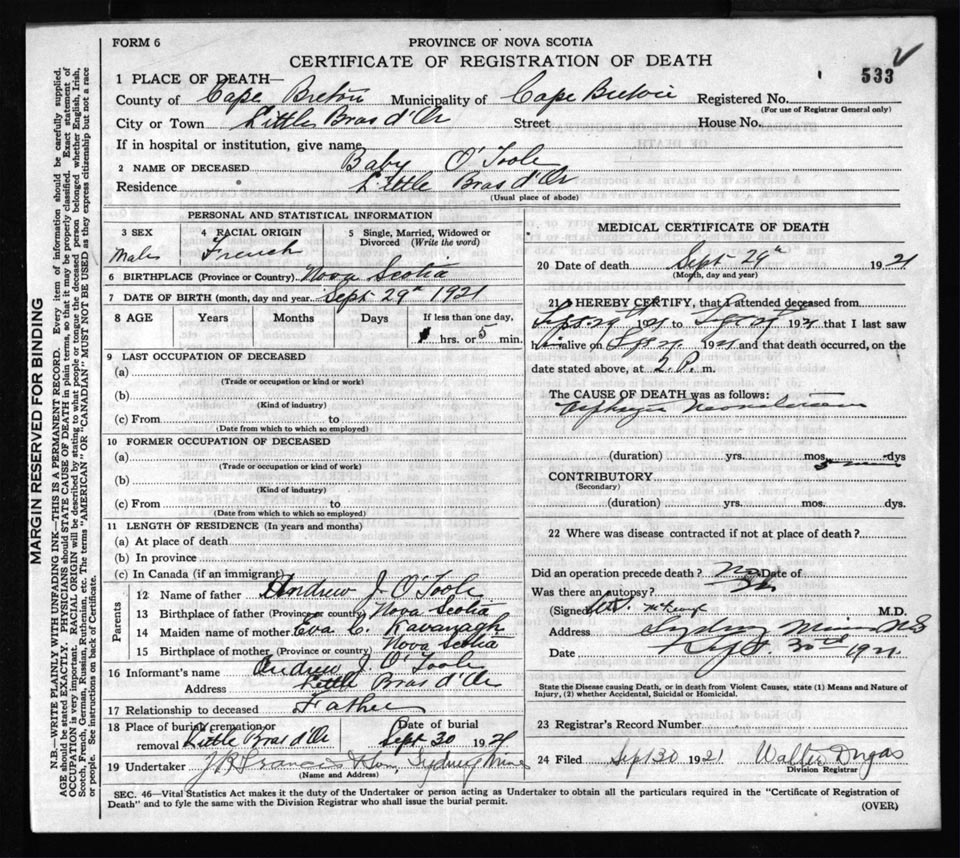 FORM 6
PROVINCE OF NOVA SCOTIA
CERTIFICATE OF REGISTRATION OF DEATH
533
1 PLACE OF DEATH—
County of Cape Breton Municipality of Cape Breton Registered No.
(For use of Registrar General only)
City or Town Little Bras d'Or Street House No.
If in hospital or institution, give name
2 NAME OF DECEASED Baby O'Toole
Residence Little Bras d'Or
(Usual place of abode)
PERSONAL AND STATISTICAL INFORMATION
3 SEX 4 RACIAL ORIGIN 5 Single, Married, Widowed or
Divorced (Write the word)
Male French
6 BIRTHPLACE (Province or Country) Nova Scotia
7 DATE OF BIRTH (month, day and year) Sept 29th 1921
8 AGE Years Months Days If less than one day,
hrs. or 5 min.
9 LAST OCCUPATION OF DECEASED
(a)
(Trade or occupation or kind or work)
(b)
(Kind of industry)
(c) From to
(Date from which to which so employed)
10 FORMER OCCUPATION OF DECEASED
(a)
(Trade or occupation or kind of work)
(b)
(Kind of industry)
(c) From to
(Date from which to which so employed)
11 LENGTH OF RESIDENCE (In years and months)
(a) At place of death
(b) In province
(c) In Canada (if an immigrant)
Parents
12 Name of father Andrew J. O'Toole
13 Birthplace of father (Province or country) Nova Scotia
14 Maiden name of mother Eva C. Kavanagh
15 Birthplace of mother (Province or country) Nova Scotia
16 Informant's name Andrew J. O'Toole
Address Little Bras d'Or
17 Relationship to deceased Father
18 Place of burial, cremation or
removal Little Bras d'Or
Date of burial
Sept 30 1921
19 Undertaker J. R. Francis & Son, Sydney Mines
(Name and Address)
MEDICAL CERTIFICATE OF DEATH
20 Date of death Sept 29th 1921
(Month, day and year)
21 I HEREBY CERTIFY, that I attended deceased from
Sept 29 1921 to Sept 29 1921 that I last saw
him alive on Sept 29 1921 and that death occurred, on the
date stated above, at 2 P. m.
The CAUSE OF DEATH was as follows:
Asphyxia Neonatorum
(duration) yrs. mos. dys
5 min
CONTRIBUTORY
(Secondary)
(duration) yrs. mos. dys.
22 Where was disease contracted if not at place of death?
Did an operation precede death? No Date of
Was there an autopsy? No
(Signed) M.D.
Address Sydney Mines NS
Date Sept. 30th 1921
State the Disease causing Death, or in death from Violent Causes, state (1) Means and Nature of
Injury, (2) whether Accidental, Suicidal or Homicidal.
23 Registrar's Record Number
24 Filed Sept 30 1921 Walter Dugas
Division Registrar
SEC. 46—Vital Statistics Act makes it the duty of the Undertaker or person acting as Undertaker to obtain all the particulars required in the "Certificate of Registration of
Death" and to fyle the same with the Division Registrar who shall issue the burial permit.
(OVER)
MARGIN RESERVED FOR BINDING
N.B.—WRITE PLAINLY WITH UNFADING INK—THIS IS A PERMANENT RECORD. Every item of information should be carefully supplied.
AGE should be stated EXACTLY. PHYSICIANS should STATE CAUSE OF DEATH in plain terms, so that it may be properly classified. Exact statement of
OCCUPATION is very important. RACIAL ORIGIN will be described by stating to what people or tongue the deceased person belonged whether English, Irish,
Scotch, French, German, Russian, Ruthenian, etc. The terms "AMERICAN" OR "CANADIAN" MUST NOT BE USED as they express citizenship but not a race
or people. See instructions on back of Certificate.